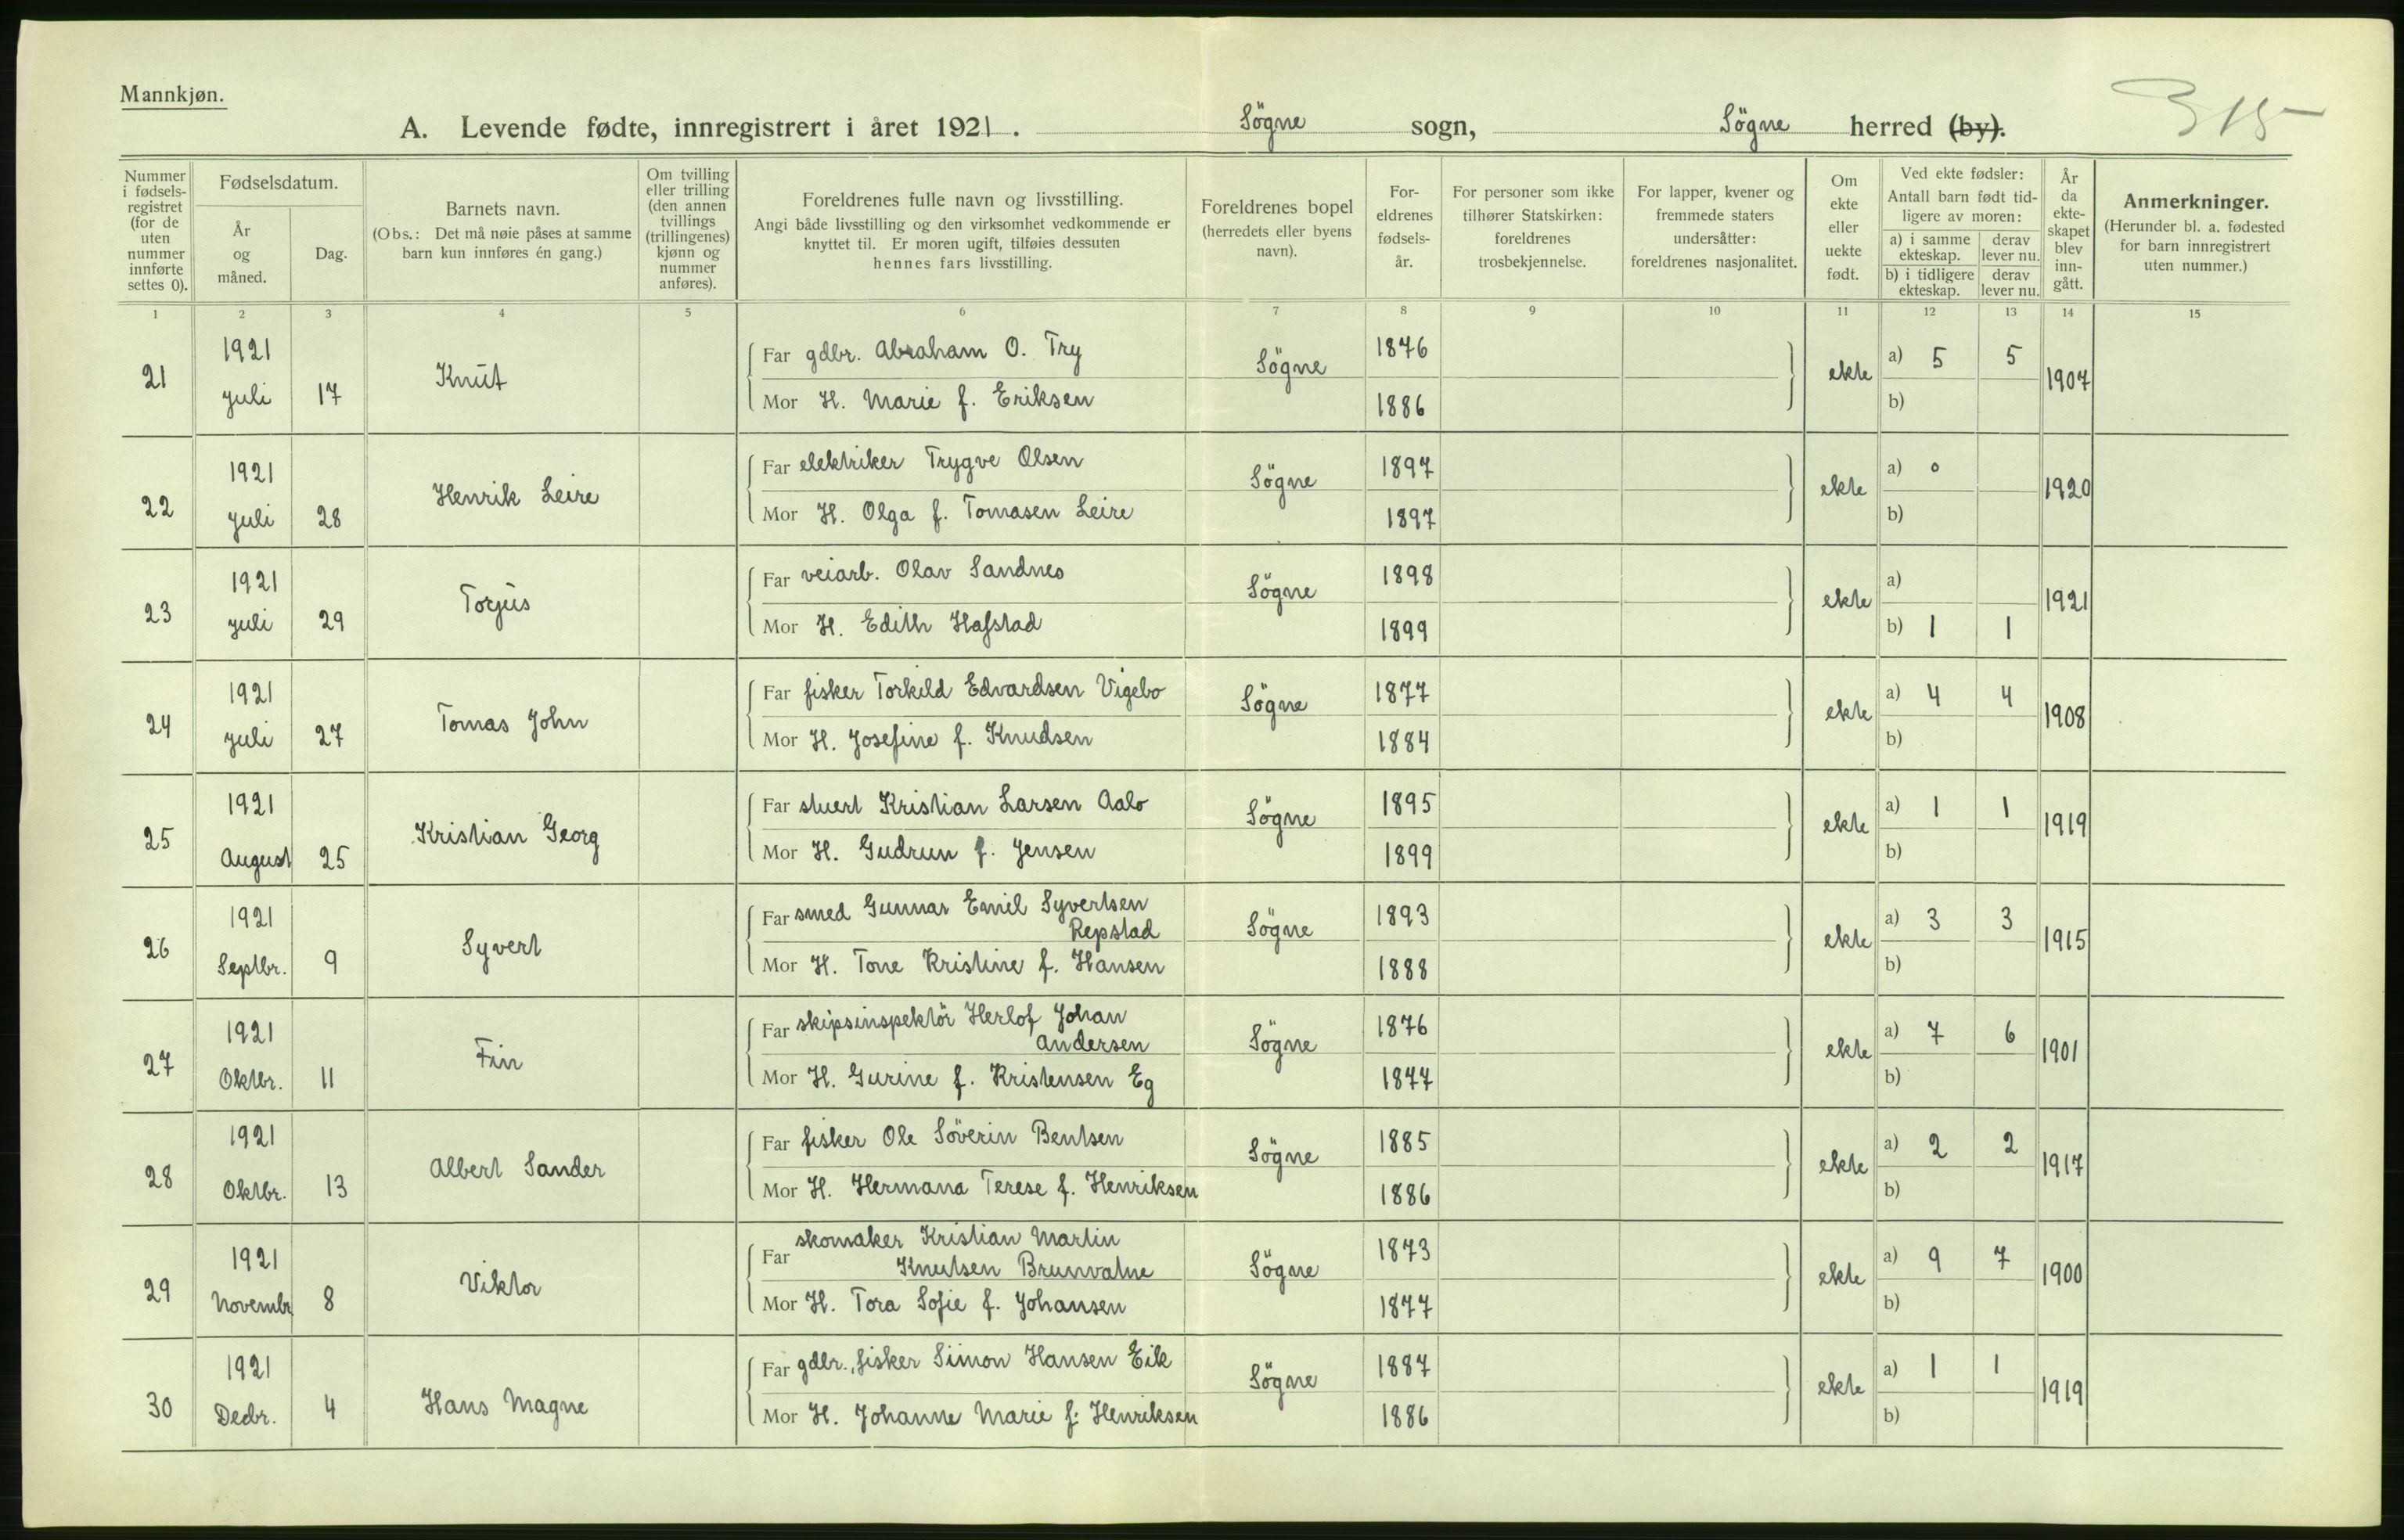 Mannkjøn.
A. Levende fødte, innregistrert i året 1921. Sögne sogn, Sögne herred (by). 315
Nummer i fødselsregistret (for de uten nummer innførte settes 0).
Fødselsdatum.
År og måned.
Dag.
Barnets navn.
(Obs.: Det må nøie påses at samme barn kun innføres én gang.)
Om tvilling eller trilling (den annen tvillings (trillingenes) kjønn og nummer anføres).
Foreldrenes fulle navn og livsstilling.
Angi både livsstilling og den virksomhet vedkommende er knyttet til. Er moren ugift, tilføies dessuten hennes fars livsstilling.
Foreldrenes bopel (herredets eller byens navn).
Foreldrenes fødselsår.
For personer som ikke tilhører Statskirken: foreldrenes trosbekjennelse.
For lapper, kvener og fremmede staters undersåtter: foreldrenes nasjonalitet.
Om ekte eller uekte født.
Ved ekte fødsler: Antall barn født tidligere av moren:
a) i samme ekteskap. derav lever nu.
b) i tidligere ekteskap. derav lever nu.
År da ekteskapet blev inngått.
Anmerkninger.
(Herunder bl. a. fødested for barn innregistrert uten nummer.)
1 2 3 4 5 6 7 8 9 10 11 12 13 14 15
21 1921 juli 17 Knut Far gdbr. Abraham O. Try Søgne 1876 ekte a) 5 5 1907
Mor H. Marie f. Eriksen 1886 b)
22 1921 juli 28 Henrik Leire Far elektriker Trygve Olsen Sögne 1897 ekte a) 0 1920
Mor H. Olga f. Tomasen Leire 1897 b)
23 1921 juli 29 Torjus Far veiarb. Olav Sandnes Sögne 1898 ekte a) 1921
Mor H. Edith Hafstad 1899 b) 1 1
24 1921 juli 27 Tomas John Far fisker Torkild Edvardsen Vigebo Sögne 1877 ekte a) 4 4 1908
Mor H. Josefine f. Knudsen 1884 b)
25 1921 August 25 Kristian Georg Far stuert Kristian Larsen Aalo Sögne 1895 ekte a) 1 1 1919
Mor H. Gudrun f. Jensen 1899 b)
26 1921 Septbr. 9 Syvert Far smed Gunnar Emil Syvertsen Repstad Sögne 1893 ekte a) 3 3 1915
Mor H. Tone Kristine f. Hansen 1888 b)
27 1921 Oktbr. 11 Fin Far skipsinspektör Herlof Johan Andersen Sögne 1876 ekte a) 7 6 1901
Mor H. Gurine f. Kristensen Eg 1877 b)
28 1921 Oktbr. 13 Albert Sander Far fisker Ole Söverin Bentsen Sögne 1885 ekte a) 2 2 1917
Mor H. Hermana Terese f. Henriksen 1886 b)
29 1921 Novembr 8 Viktor Far skomaker Kristian Martin Knutsen Brunvatne Sögne 1873 ekte a) 9 7 1900
Mor H. Tora Sofie f. Johansen 1877 b)
30 1921 Decbr. 4 Hans Magne Far gdbr., fisker Simon Hansen Eik Sögne 1887 ekte a) 1 1 1919
Mor H. Johanne Marie f. Henriksen 1886 b)